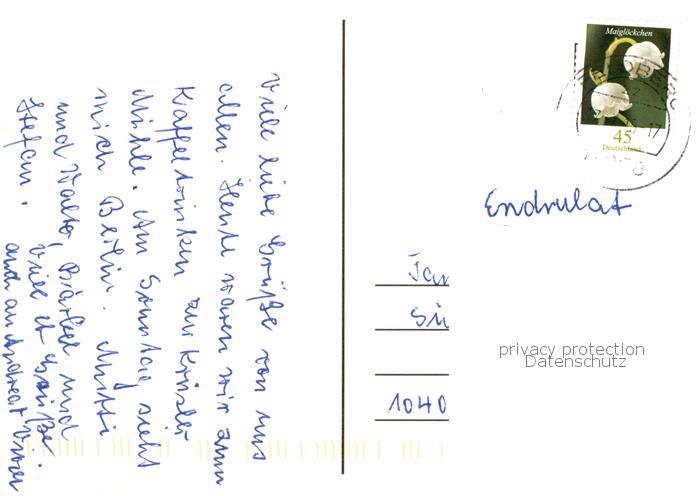 Viele liebe Grüße von uns
allen. Heute waren wir zum
Kaffeetrinken zur Krüster
Mühle. Am Sonntag sieht
mich Berlin. Mutti
und Walter, Bärbel und
Stefan. Viele
auch an Andreas
Maiglöckchen
45
Deutschland
Endrulat
Jan
1040
privacy protection
Datenschutz